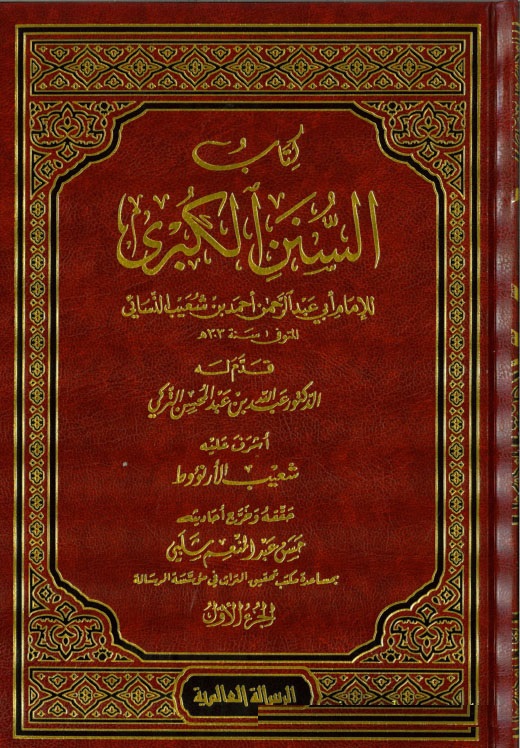 كتاب
السنن الكبرى
للإمام أبي عبد الرحمن أحمد بن شعيب النسائي
المتوفى سنة ٣٠٣ هـ
قدم له
الدكتور عبد الله بن عبد المحسن التركي
أشرف عليه
شعيب الأرنؤوط
حققه وخرج أحاديثه
حسن عبد المنعم شلبي
بمساعدة مكتب تحقيق التراث في مؤسسة الرسالة
الجزء الأول
الرسالة العالمية